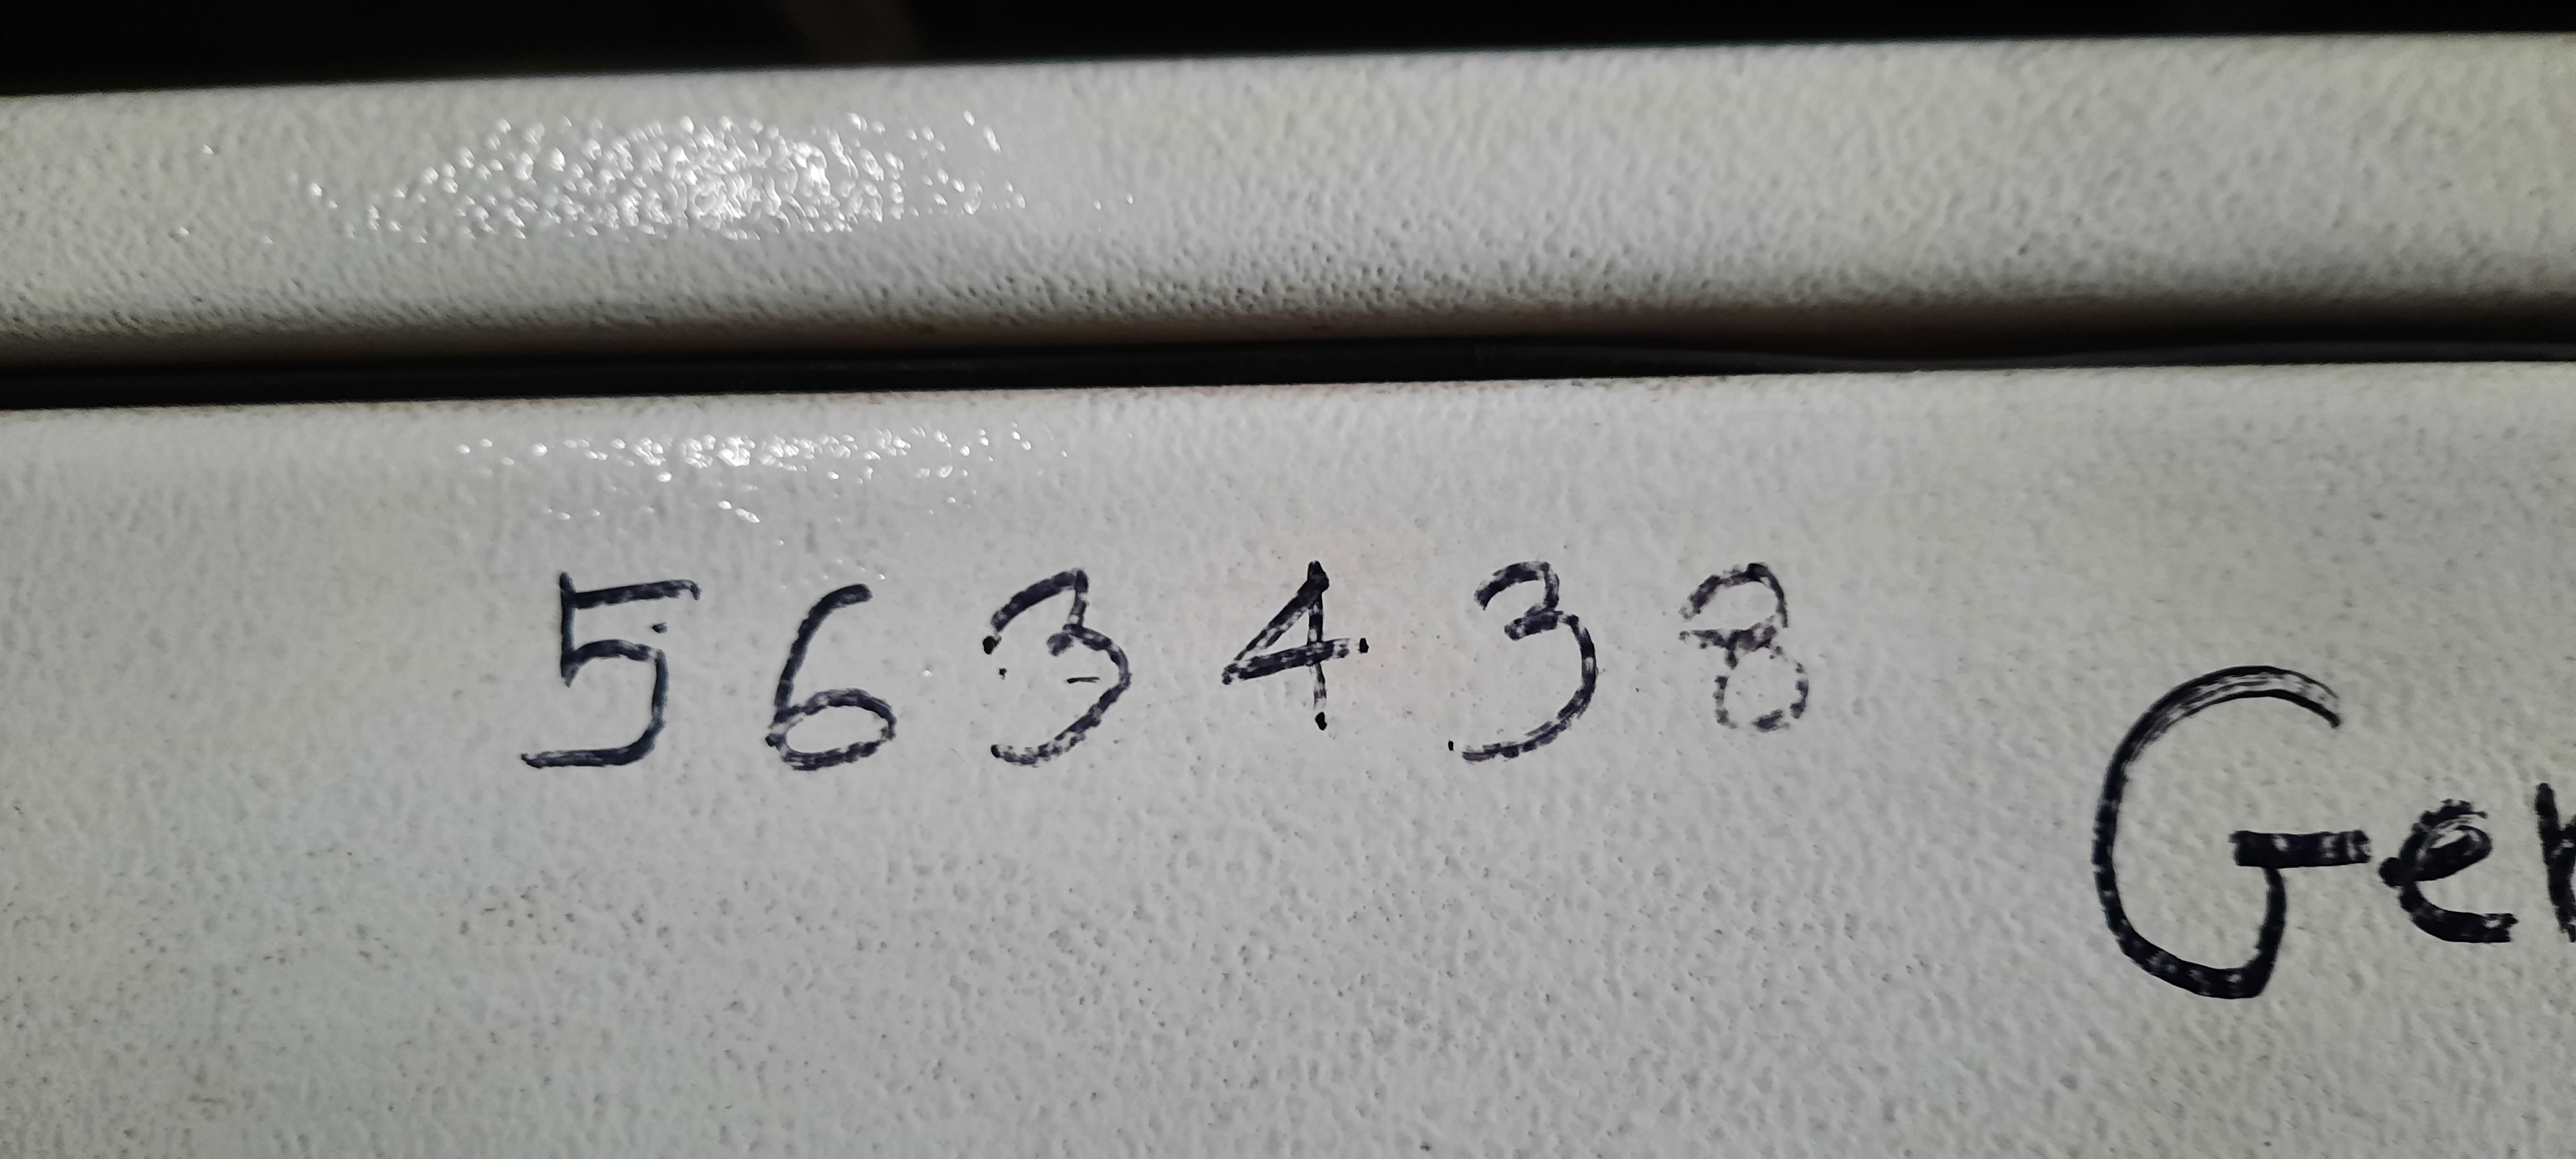 563438
Ge